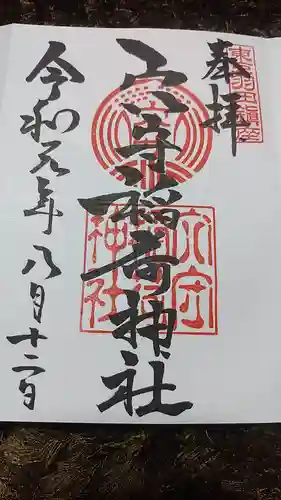 奉拝
東京羽田鎮座
穴守稲荷神社
穴守稲荷神社
令和元年八月十二日